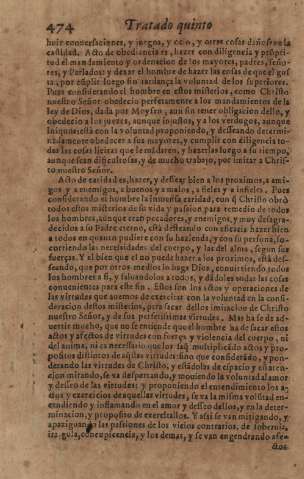 474 Tratado quinto
huir conversaciones, y juegos, y ocio, y otras cosas dañosas a la
castidad. Acto de obediencia es, hazer con diligencia y prompti-
tud el mandamiento y ordenacion de los mayores, padres, seño-
res, y Parlados: y dexar el hombre de hazer las cosas de que el gus
ta, por cũplir luego sin tardança la voluntad de los superiores.
Pues considerando el hombre en estos misterios, como Christo
nuestro Señor obedecio perfectamente a los mandamientos de la
ley de Dios, dada por Moysen, aun sin tener obligacion dello, y
obedecio a los juezes, aunque injustos, y a los verdugos, aunque
iniquos: està con la voluntad proponiendo, y desseando determi-
nadamente obedecer a sus mayores, y complir con diligencia to-
das las cosas licitas que le mãdaren, y hazerlas luego a su tiempo,
aunque sean dificultosas, y de mucho trabajo, por imitar a Chris-
to nuestro Señor.
Acto de caridad es, hazer, y dessear bien a los proximos, a ami-
gos y a enemigos, a buenos y a malos, a fieles y a infieles. Pues
considerando el hombre la inmensa caridad, con q̃ Christo obrò
todos estos misterios de su vida y passion para remedio de todos
los hombres, aunque eran pecadores, y enemigos, y muy desagra-
decidos a su Padre eterno, està desseando con eficacia hazer bien
a todos en quanto pudiere con su hazienda, y con su persona, so-
corriendo las necessidades del cuerpo, y las del alma, segun sus
fuerças. Y el bien que el no puede hazer a los proximos, està des-
seando, que por otros medios lo haga Dios, convirtiendo todos
los hombres a si, y salvandolos a todos, y dãdoles todas las cosas
convenientes para este fin. Estos son los actos y operaciones de
las virtudes que avemos de exercitar con la voluntad en la consi-
deracion destos misterios, para sacar dellos imitacion de Christo
nuestro Señor, y de sus perfetissimas virtudes. Mas hase de ad-
vertir mucho, que no se entiende que el hombre ha de sacar estos
actos y afectos de virtudes con fuerça y violencia del cuerpo, ni
del anima, ni es necessario que los este multiplicãdo actos y pro-
positos distintos de aq̃llas virtudes: sino que considerãdo, y pon-
derando las virtudes de Christo, y estãdolas de espacio y con aten-
cion mirando, se va despertando, y moviendo la voluntad al amor
y desseo de las virtudes: y proponiendo el entendimiento los a-
ctos y exercicios de aquellas virtudes, se va la misma volũtad en-
cendiendo y inflamando en el amor y desseo dellos, y en la deter-
minacion, y proposito de exercitallos. Y assi se van mitigando, y
apaziguando las passiones de los vicios contrarios, de sobervia,
ira, gula, concupiscencia, y los demas, y se van engendrando afe-
ctos